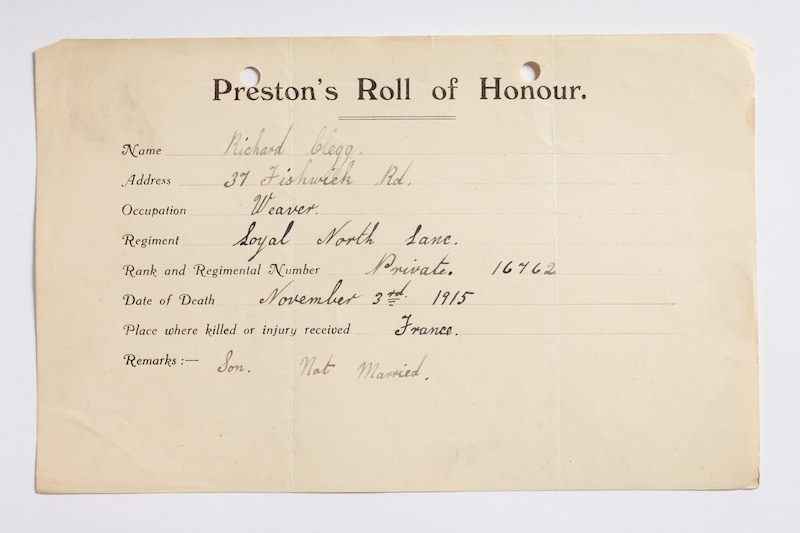 Preston's Roll of Honour.
Name Richard Clegg.
Address 37 Fishwick Rd.
Occupation Weaver.
Regiment Loyal North Lanc.
Rank and Regimental Number Private. 16762
Date of Death November 3rd. 1915
Place where killed or injury received France.
Remarks :— Son. Not Married.